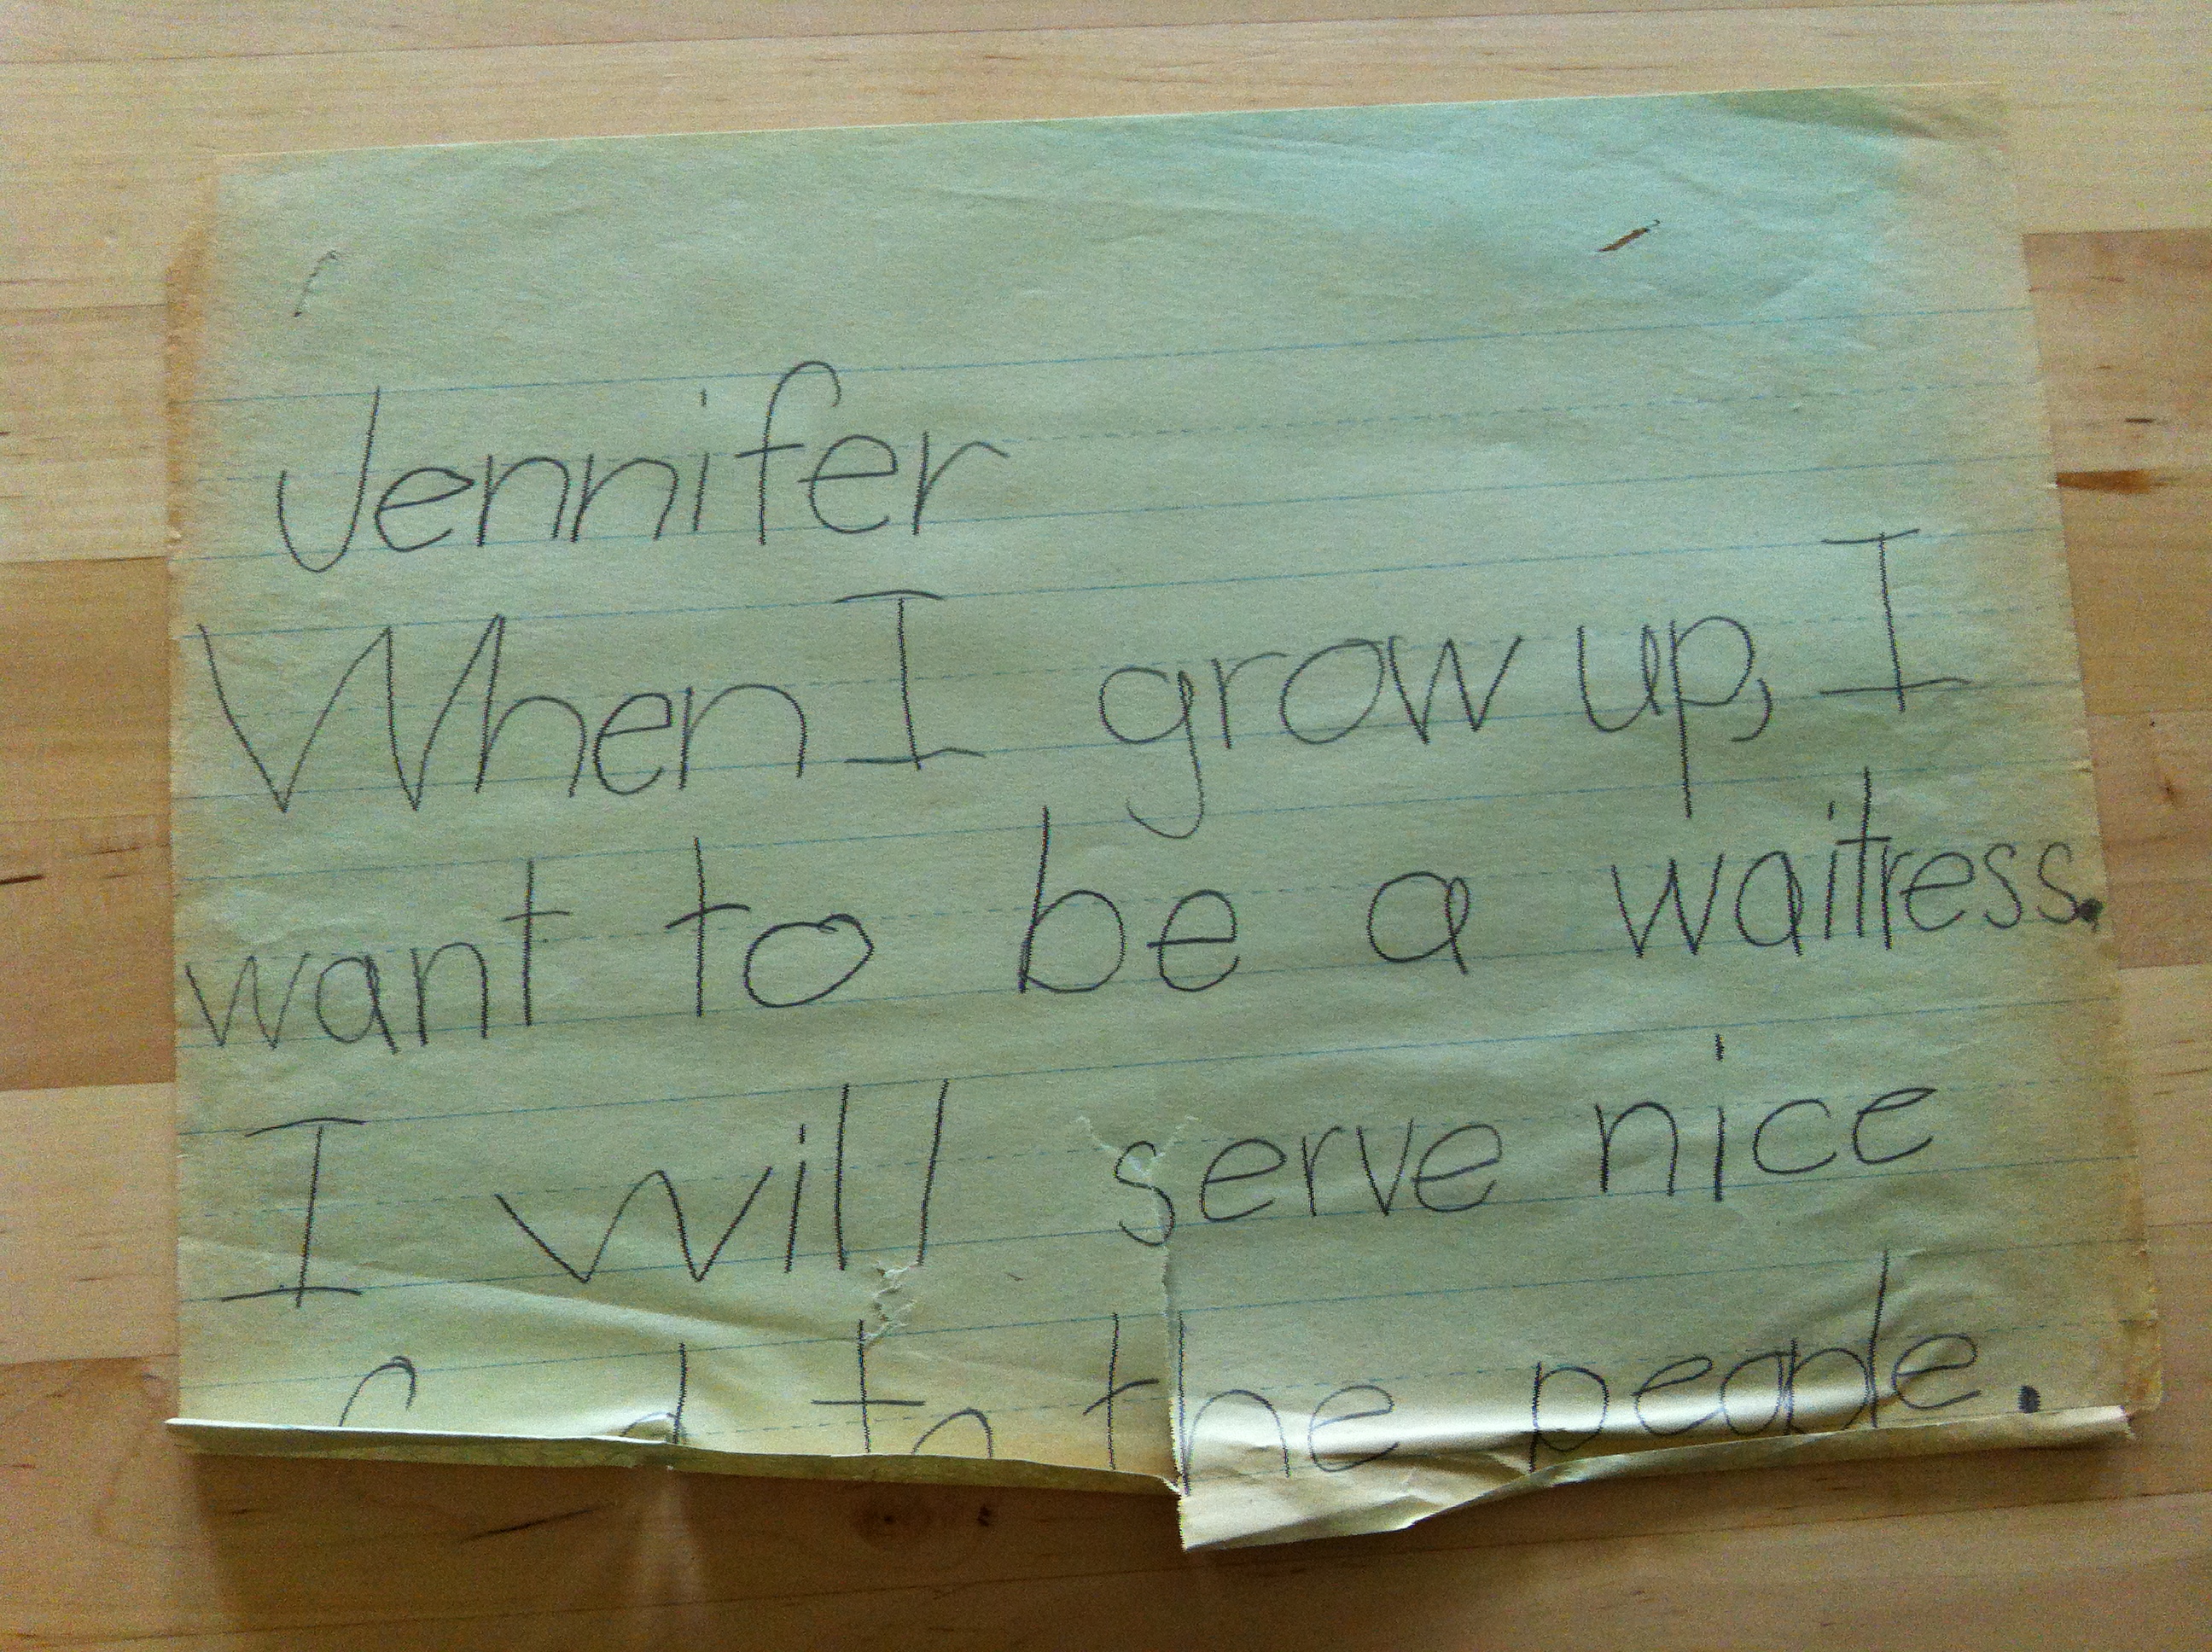 Jennifer
When I grow up, I
want to be a waitress.
I will serve nice
to the people.